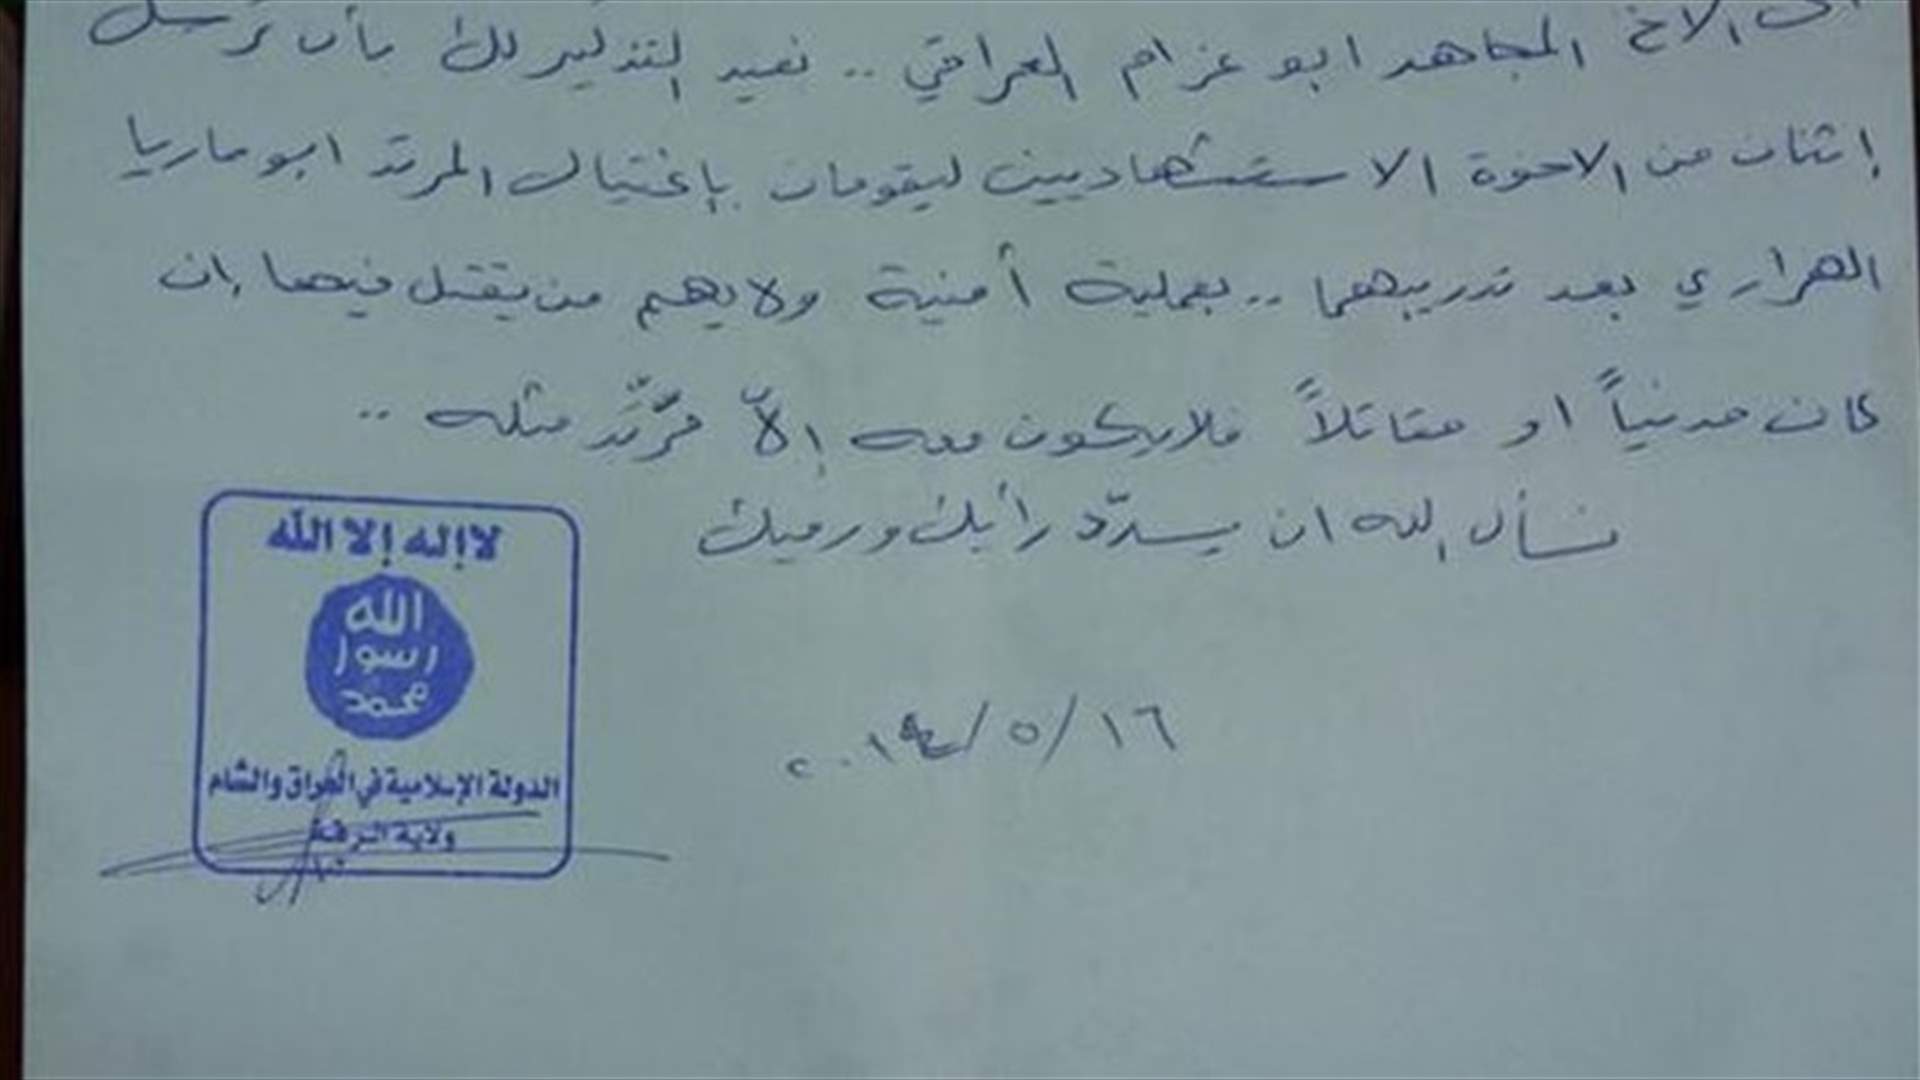 الى الاخ المجاهد ابو عزام العراقي .. نعيد التذكير لك بأن ترسل
إثنان من الاخوة الاستشهاديين ليقومان بإغتيال المرتد ابو ماريا
الهراري بعد تدريبهما .. بعملية أمنية ولا يهم من يقتل فيها إن
كان مدنياً او مقاتلاً فلا يكون معه إلاّ مرتد مثله ..
نسأل الله ان يسدّد رأيك ورميك
لا إله إلا الله
الله
رسول
محمد
١٦/٥/٢٠١٤
الدولة الإسلامية في العراق والشام
ولاية الرقة